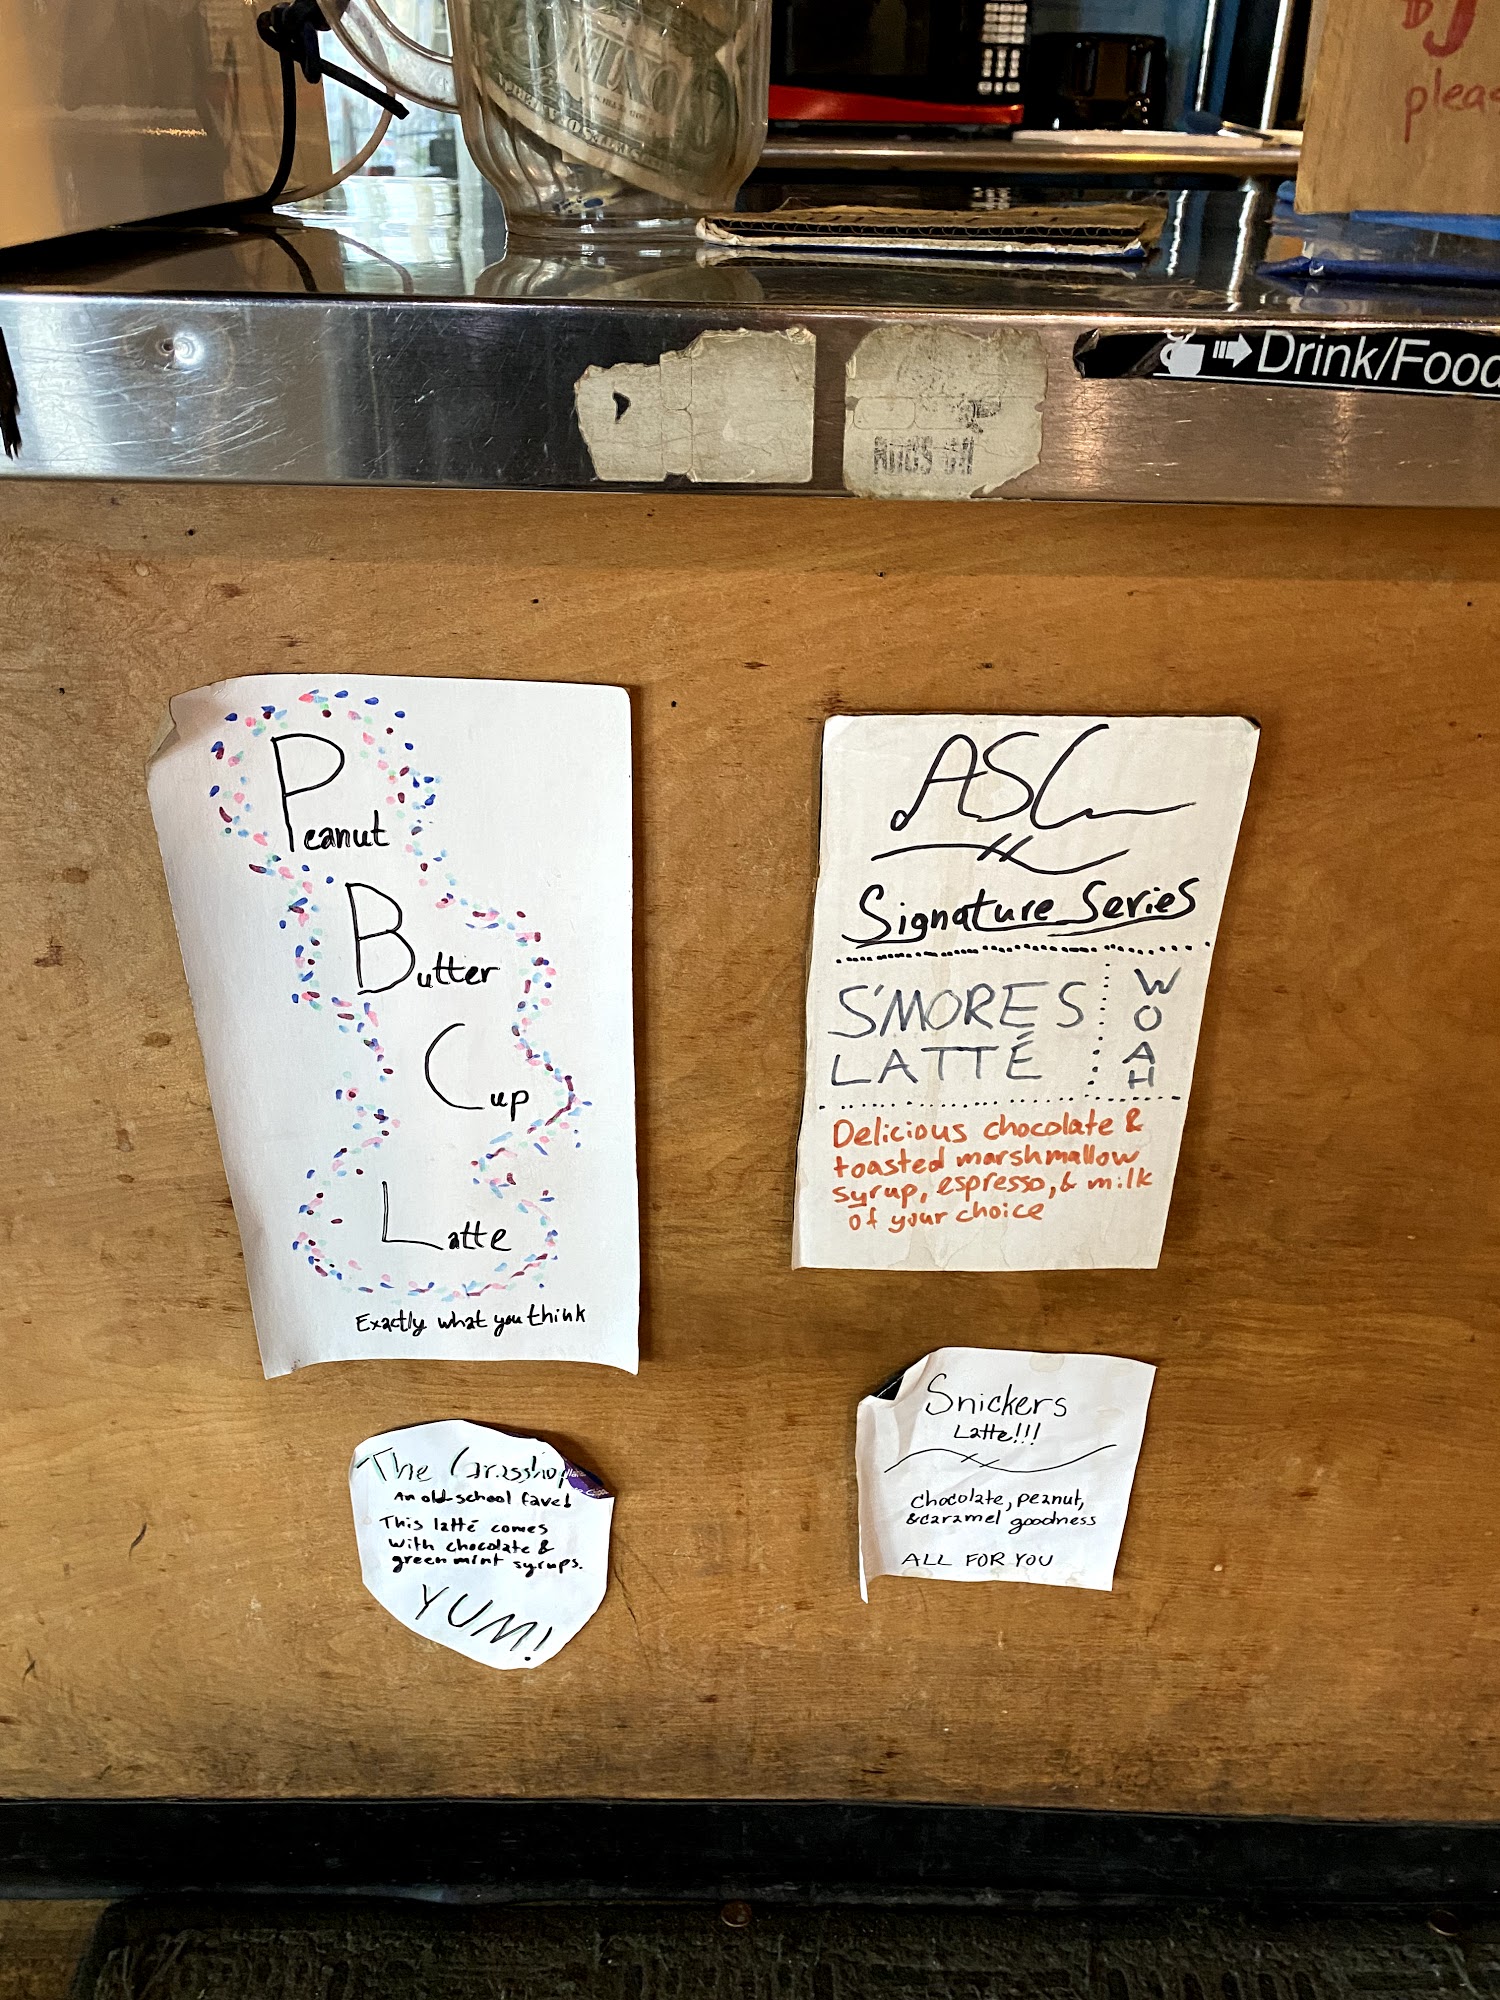 please
Drink/Food
Peanut
Butter
Cup
Latte
Exactly what you think
ASC
Signature Series
S'MORES
LATTÉ
WOAH
Delicious chocolate &
toasted marshmallow
syrup, espresso, & milk
of your choice
The
An old-school fave!
This latté comes
with chocolate &
green mint syrups.
YUM!
Snickers
Latte!!!
Chocolate, peanut,
& caramel goodness
ALL FOR YOU